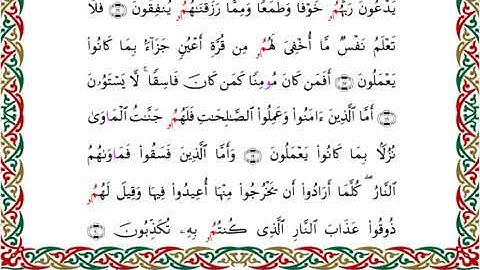 يَدْعُونَ رَبَّهُمُۥ خَوْفًا وَطَمَعًا وَمِمَّا رَزَقْنَٰهُمُۥ يُنفِقُونَ ۝ فَلَا
تَعْلَمُ نَفْسٌ مَّا أُخْفِىَ لَهُمُۥ مِن قُرَّةِ أَعْيُنٍ جَزَآءَۢ بِمَا كَانُوا۟
يَعْمَلُونَ ۝ أَفَمَن كَانَ مُومِنًا كَمَن كَانَ فَاسِقًا ۚ لَّا يَسْتَوُۥنَ
۝ أَمَّا ٱلَّذِينَ ءَامَنُوا۟ وَعَمِلُوا۟ ٱلصَّٰلِحَٰتِ فَلَهُمُۥ جَنَّٰتُ ٱلْمَاوَىٰ
نُزُلَۢا بِمَا كَانُوا۟ يَعْمَلُونَ ۝ وَأَمَّا ٱلَّذِينَ فَسَقُوا۟ فَمَاوَىٰهُمُ
ٱلنَّارُ ۖ كُلَّمَا أَرَادُوا۟ أَن يَخْرُجُوا۟ مِنْهَا أُعِيدُوا۟ فِيهَا وَقِيلَ لَهُمُۥ
ذُوقُوا۟ عَذَابَ ٱلنَّارِ ٱلَّذِى كُنتُمُۥ بِهِۦ تُكَذِّبُونَ ۝